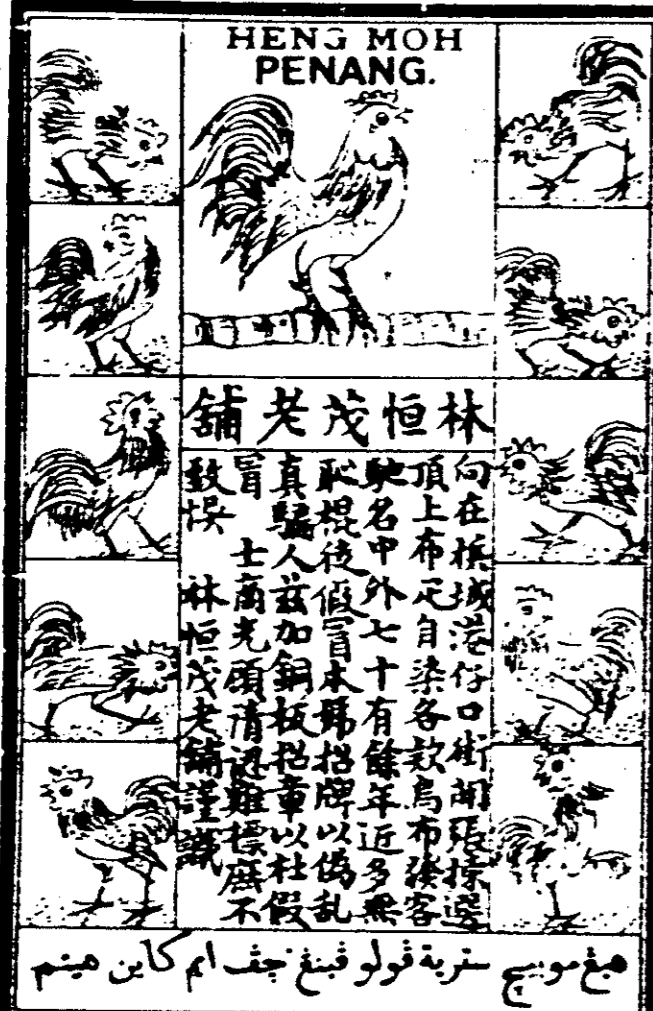 HENG MOH
PENANG.
林恒茂老舖
向在檳城港仔口街開張揀選
頂上布疋自染各款烏布發客
馳名中外七十有餘年近多無
恥棍徒假冒本號招牌以偽乱
真騙人茲加銅板招章以杜假
冒 士商光顧請認雞標庶不
致悮 林恒茂老舖謹識
هيڠ مو بيچ سترية ڤولو ڤينڠ چڤ ايم كاين هيتم